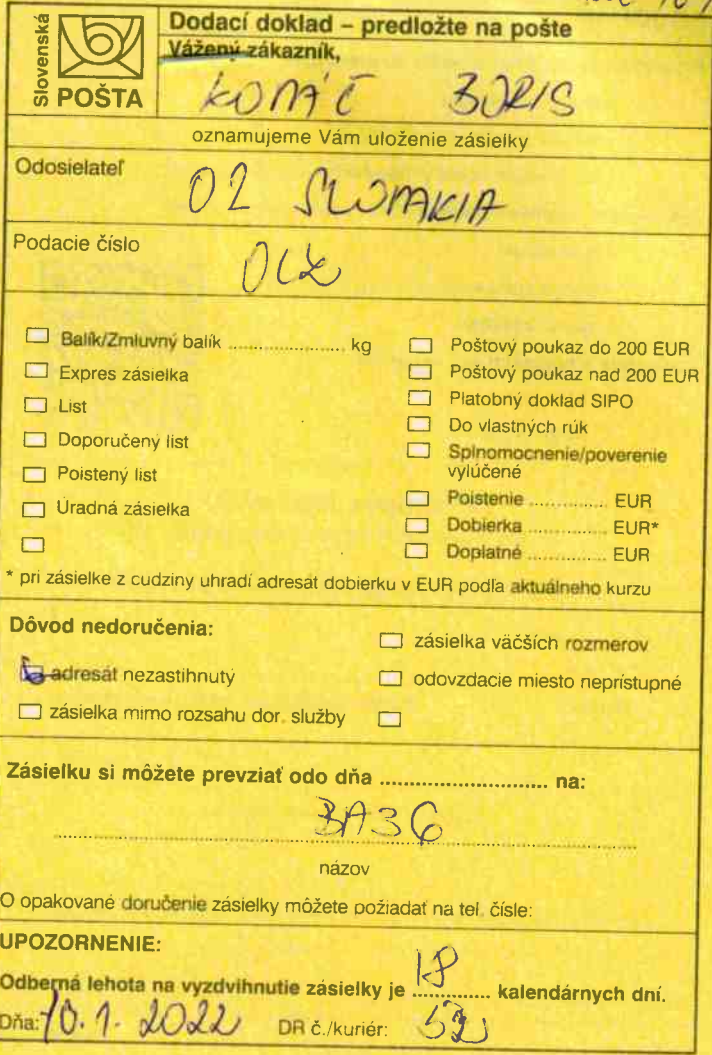 Slovenská
POŠTA
Dodací doklad – predložte na pošte
Vážený zákazník,
KOVÁČ BORIS
oznamujeme Vám uloženie zásielky
Odosielateľ
O2 SLOVAKIA
Podacie číslo
Balík/Zmluvný balík ..................... kg
Expres zásielka
List
Doporučený list
Poistený list
Úradná zásielka
Poštový poukaz do 200 EUR
Poštový poukaz nad 200 EUR
Platobný doklad SIPO
Do vlastných rúk
Splnomocnenie/poverenie
vylúčené
Poistenie .............. EUR
Dobierka .............. EUR*
Doplatné .............. EUR
* pri zásielke z cudziny uhradí adresát dobierku v EUR podľa aktuálneho kurzu
Dôvod nedoručenia:
adresát nezastihnutý
zásielka mimo rozsahu dor. služby
zásielka väčších rozmerov
odovzdacie miesto neprístupné
Zásielku si môžete prevziať odo dňa ........................... na:
BA36
názov
O opakované doručenie zásielky môžete požiadať na tel. čísle:
UPOZORNENIE:
Odberná lehota na vyzdvihnutie zásielky je 18 kalendárnych dní.
Dňa: 10.1.2022 DR č./kuriér: